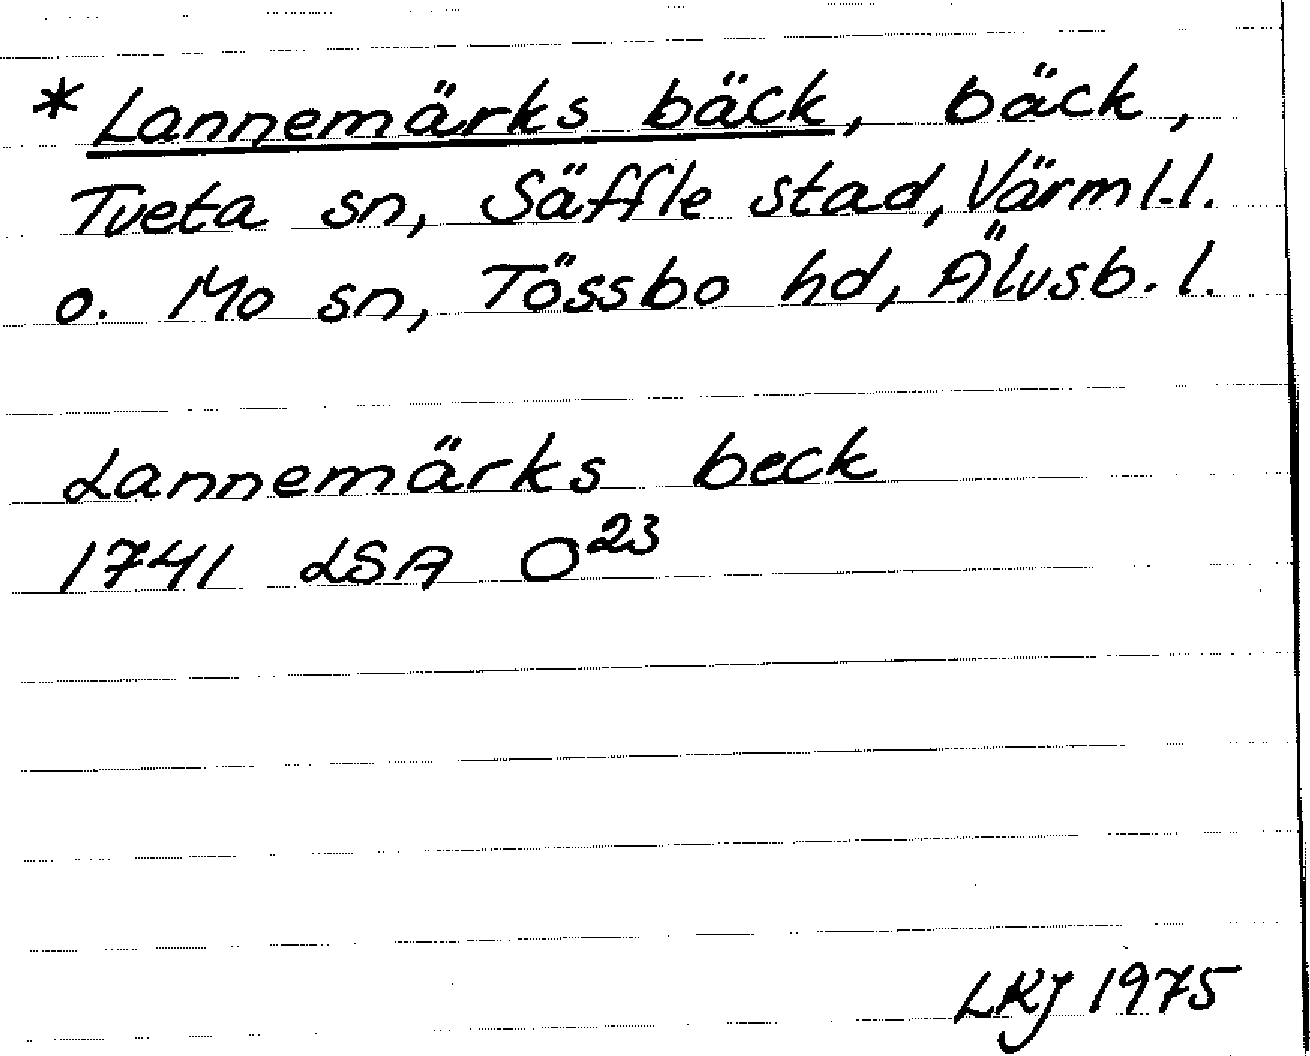 * Lannemärks bäck, bäck,
Tveta sn, Säffle stad, Värml.l.
o. Mo sn, Tössbo hd, Älvsb.l.
Lannemärks beck
1741 LSA O²³
LKJ 1975